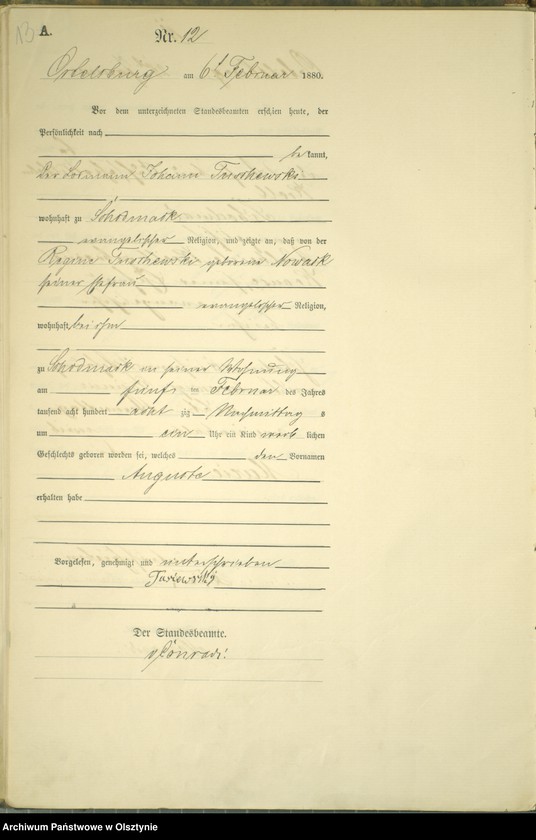 13 A.
Nr. 12
Ortelsburg am 6t Februar 1880.
Vor dem unterzeichneten Standesbeamten erschien heute, der
Persönlichkeit nach
bekannt,
Der Johann Turschewski
wohnhaft zu Schodmack
evangelischer Religion, und zeigte an, daß von der
Regine Turschewski geborene Nowack
seiner Ehefrau
evangelischer Religion,
wohnhaft bei ihm
zu Schodmack in seiner Wohnung
am fünf ten Februar des Jahres
tausend acht hundert acht zig Nachmittags
um ein Uhr ein Kind weib lichen
Geschlechts geboren worden sei, welches den Vornamen
Auguste
erhalten habe
Vorgelesen, genehmigt und unterschrieben
Der Standesbeamte.
Conradi.
Archiwum Państwowe w Olsztynie